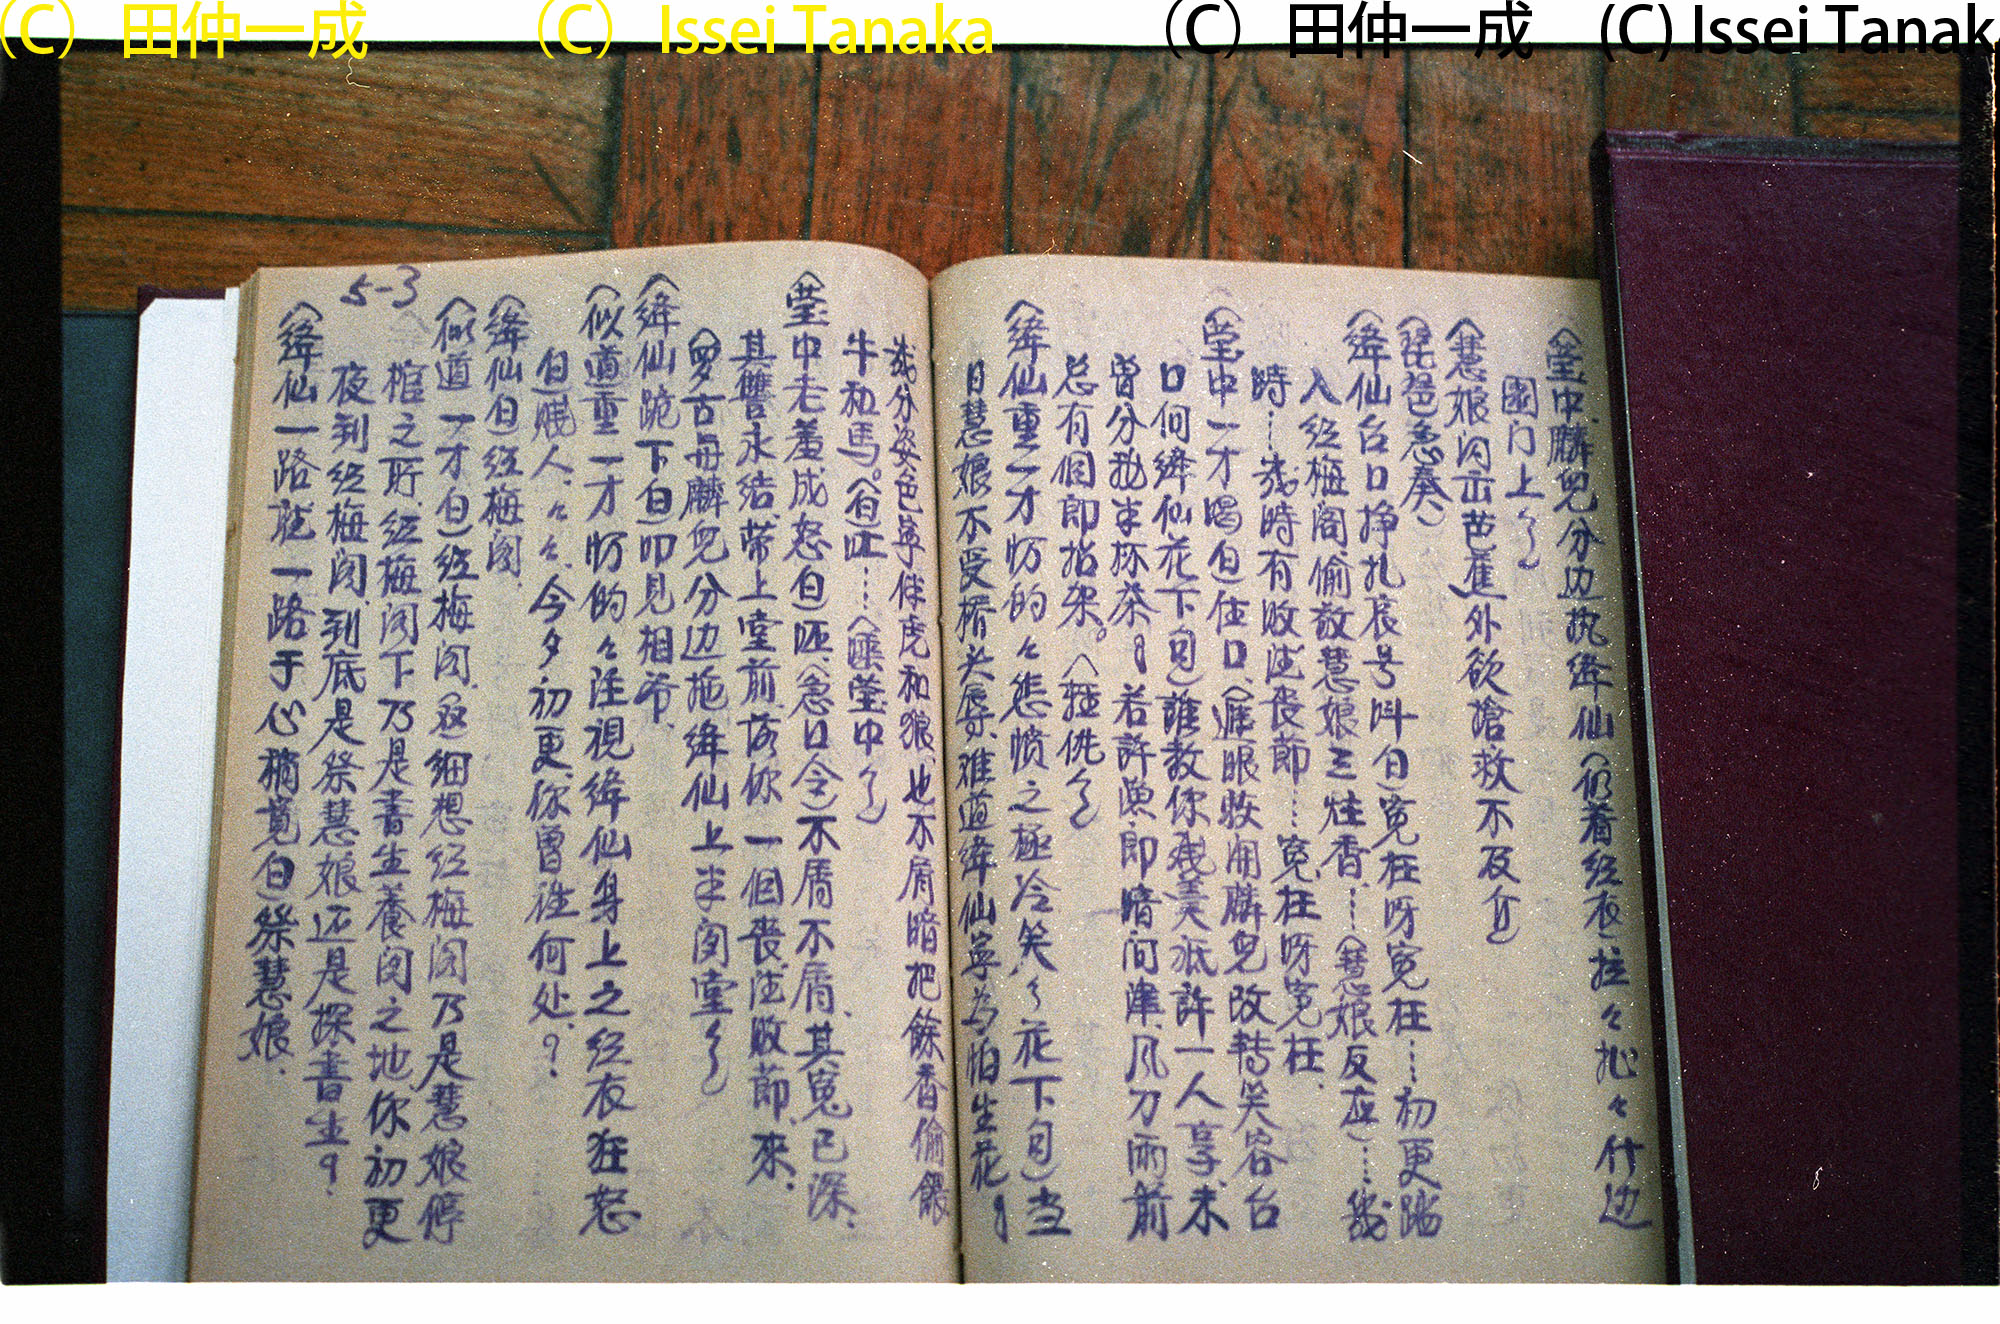 (C) 田仲一成 (C) Issei Tanaka (C) 田仲一成 (C) Issei Tanak
〈莹中、麟兒分边执绛仙（仍着经衣）拉々扯々什边
園门上
〈慧娘闪出芭蕉外欲搶救不及介）
〈琵琶急奏）
〈绛仙台口掙扎哀号叫白）冤枉呀冤枉……初更踏
入红梅阁、偷敬慧娘三炷香……〈慧娘反应）……我
時……我時有敗法喪節……冤枉呀冤枉、
〈莹中一才喝白）住口、〈遮眼收鬧麟兒改轉笑容台
口向绛仙花下句）誰教你残羹祗許一人享、未
曾分我半杯茶 若許漁郎暗问津、风刀雨箭
总有個郎招架。
〈绛仙重一才 的々悲愤之極冷笑 花下句）当
日慧娘不受 辱、难道绛仙寧为怕生花
我分姿色寧伴虎和狼、也不屑暗把餘香偷餵
牛和馬。〈白）呸……〈 莹中
〈莹中老羞成怒白）呸、〈急口令）不屑不屑、其冤已深、
其讐永结、帶上堂前、 你一個喪法敗節、來、
〈罗古 麟兒分边拖绛仙上半闲堂
〈绛仙跪下白）叩见相爷、
〈似道重一才 的々注視绛仙身上之经衣狂怒
白）贱人、々々、今夕初更、你曾往何处？
〈绛仙白）红梅阁、
〈似道一才白）红梅阁、 细想红梅阁乃是慧娘停
棺之所、红梅阁下乃是書生養闲之地、你初更
夜到红梅阁、到底是祭慧娘还是探書生？
5-3
〈绛仙一路 一路于心 白）祭慧娘、